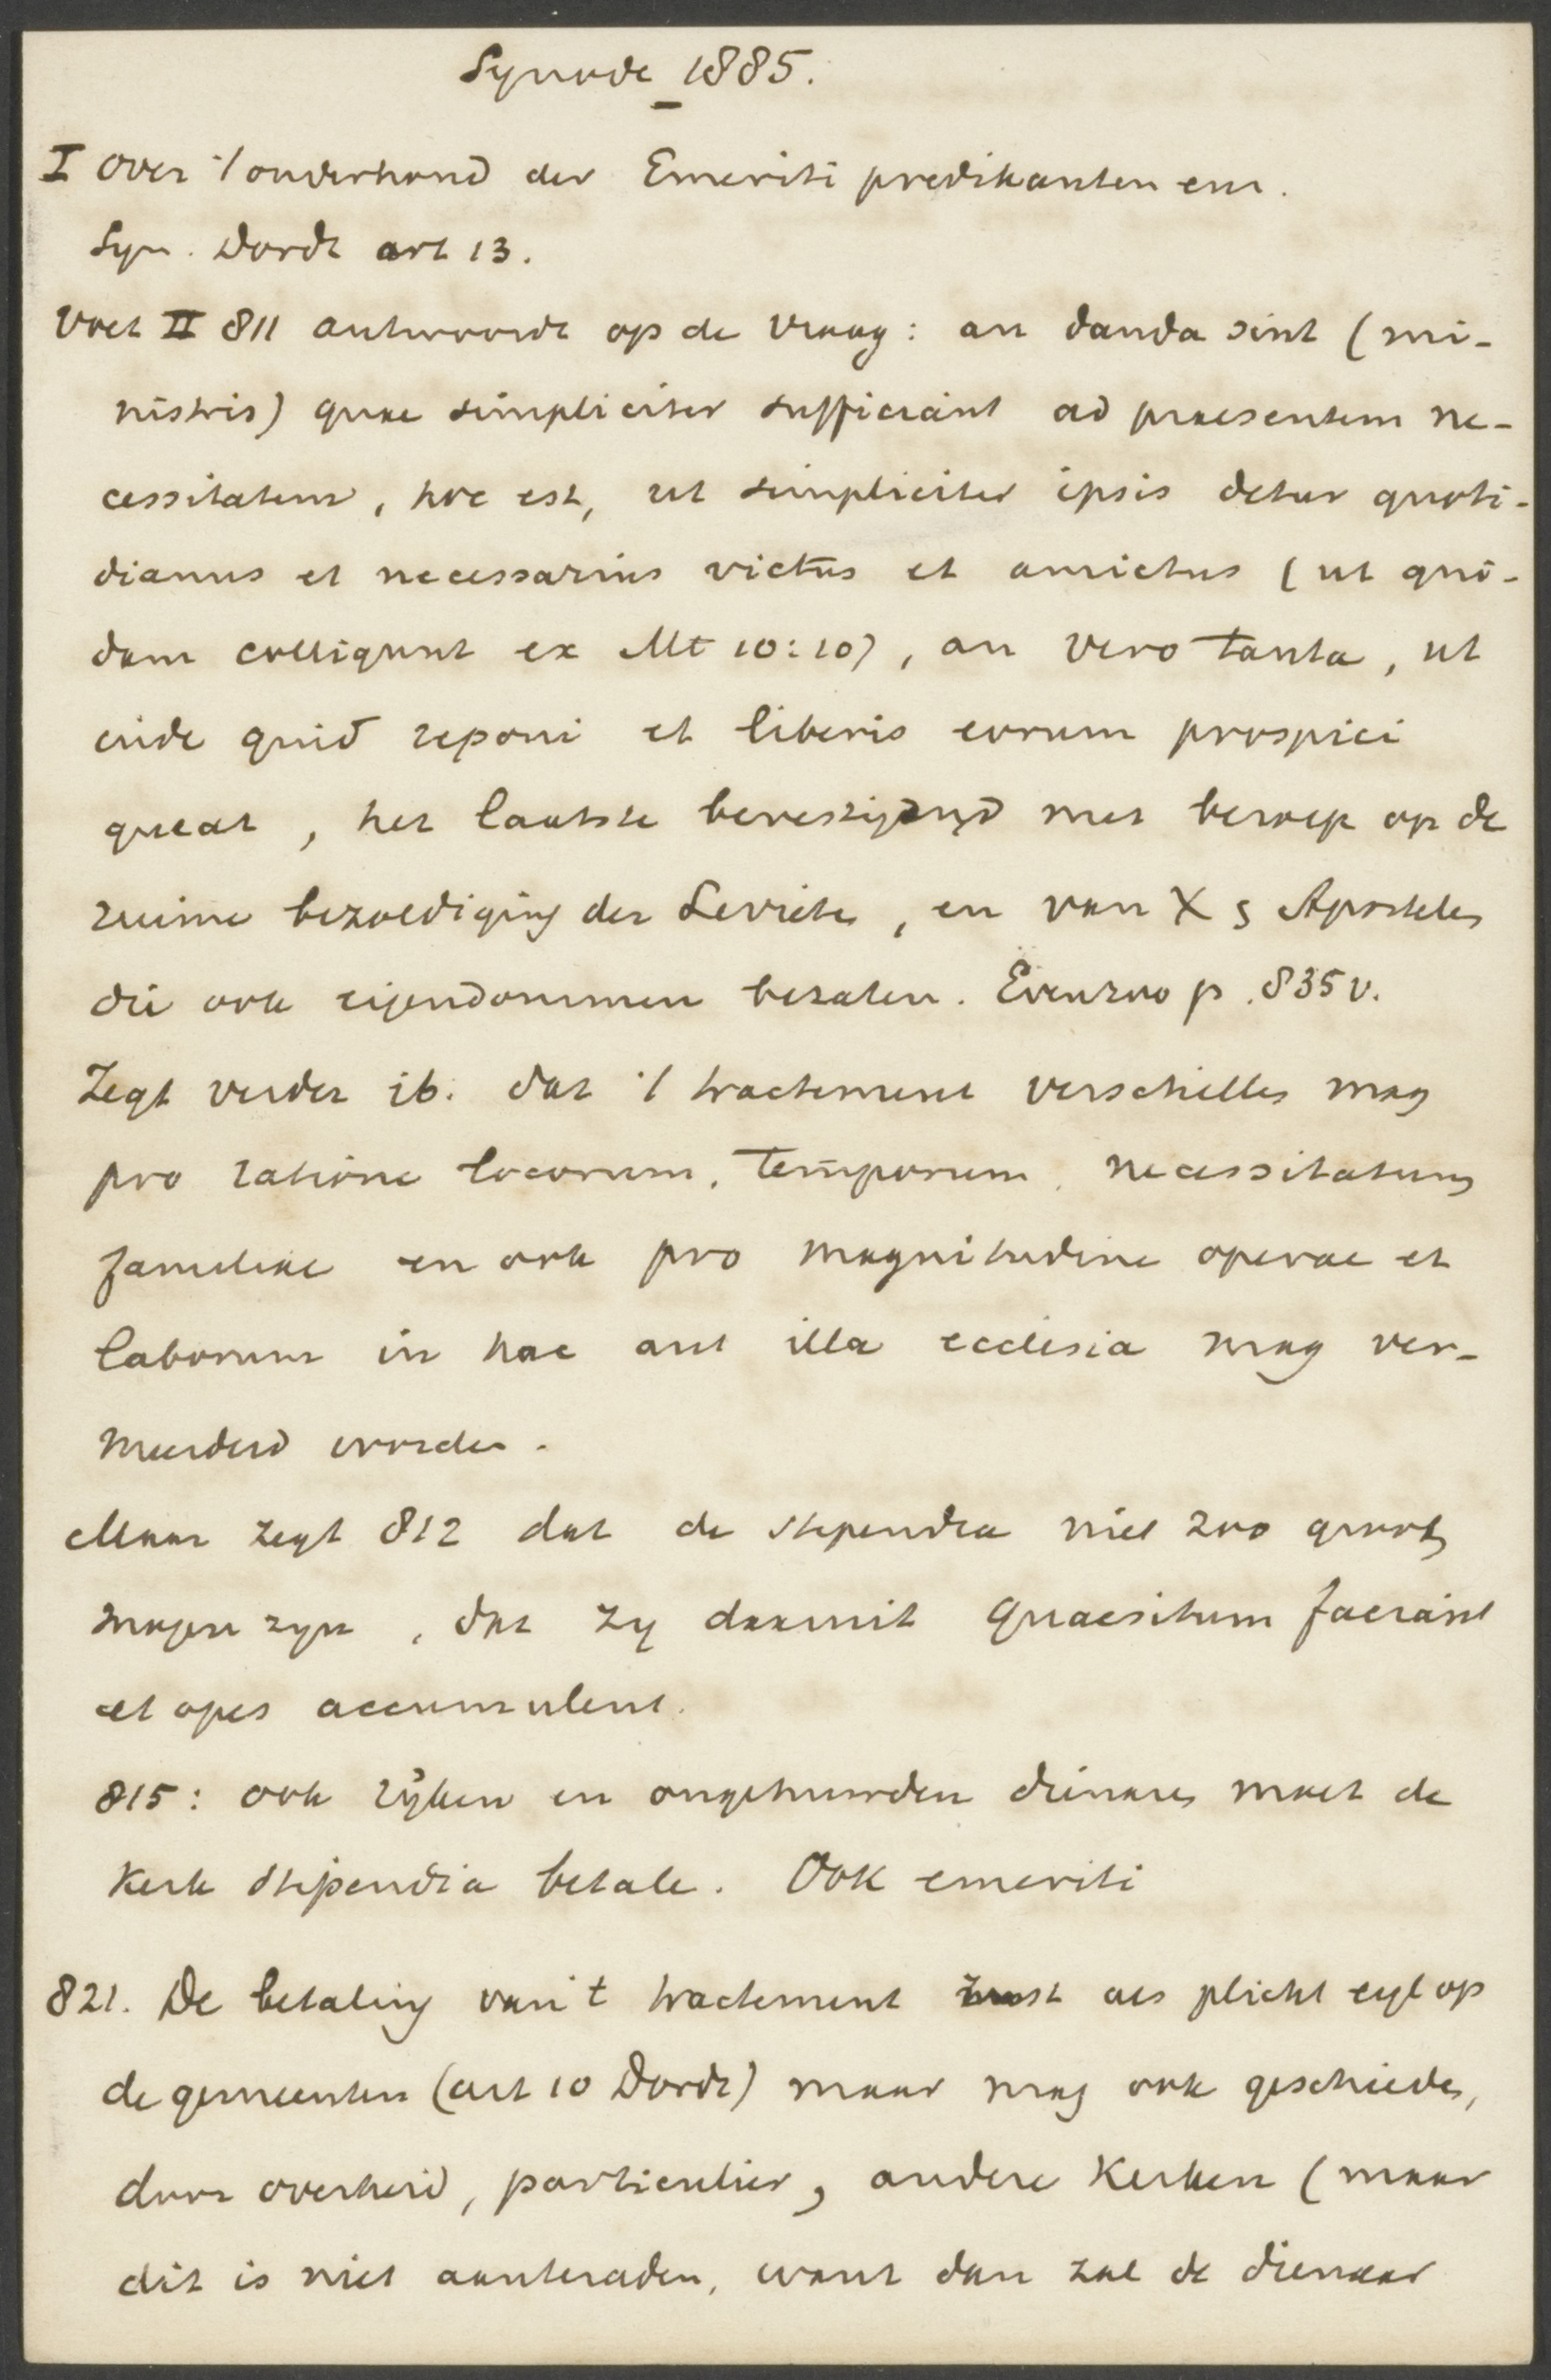 Synode 1885.
I Over 't onderhoud der Emeriti predikanten enz.
Syn. Dordt art 13.
Voet II 811 antwoordt op de vraag: an danda sint (mi-
nistris) quae simpliciter sufficiant ad praesentem ne-
cessitatem, hoc est, ut simpliciter ipsis detur quoti-
dianus et necessarius victus et amictus (ut qui-
dam colligunt ex Mt 10:10), an vero tanta, ut
inde quid reponi et liberis eorum prospici
queat, het laatste bevestigend met beroep op de
ruime bezoldiging der Leviete, en van X s Apostelen
die ook eigendommen bezaten. Evenzoo p. 835 v.
Zegt verder ib. dat 't tractement verschillen mag
pro ratione locorum, temporum, necessitatum
familiae en ook pro magnitudine operae et
laborum in hac aut illa ecclesia mag ver-
meerderd worden.
Maar zegt 812 dat de stipendia niet zoo groot
mogen zyn, dat zy daarmit quaesitum faciant
et opes accumulent.
815: ook ryken en ongehuwden dienaren moet de
Kerk stipendia betale. Ook emeriti
821. De betaling van 't tractement rust als plicht eigl op
de gemeenten (art 10 Dordt) maar mag ook geschieden,
door overheid, particulier, andere Kerken (maar
dit is niet aanteraden, want dan zal de dienaar